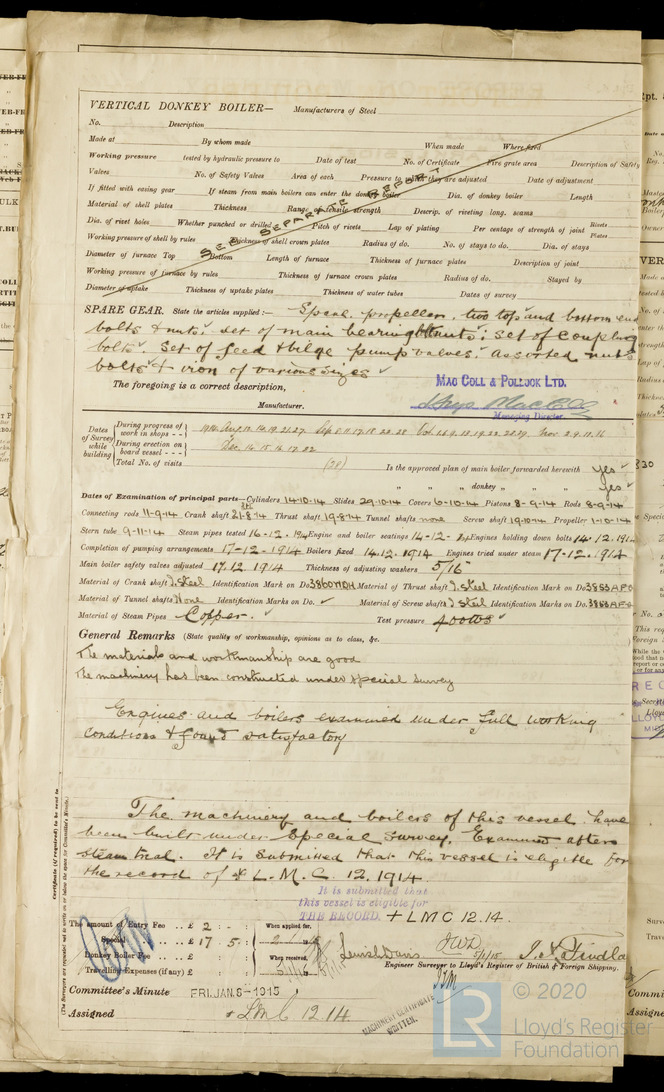 VERTICAL DONKEY BOILER— Manufacturers of Steel
No. Description
Made at By whom made When made Where fixed
Working pressure tested by hydraulic pressure to Date of test No. of Certificate Fire grate area Description of Safety
Valves No. of Safety Valves Area of each Pressure to which they are adjusted Date of adjustment
If fitted with easing gear If steam from main boilers can enter the donkey boiler Dia. of donkey boiler Length
Material of shell plates Thickness Range of tensile strength Descrip. of riveting long. seams
SEE SEPARATE REPORT
Dia. of rivet holes Whether punched or drilled Pitch of rivets Lap of plating Per centage of strength of joint Rivets Plates
Working pressure of shell by rules Thickness of shell crown plates Radius of do. No. of stays to do. Dia. of stays
Diameter of furnace Top Bottom Length of furnace Thickness of furnace plates Description of joint
Working pressure of furnace by rules Thickness of furnace crown plates Radius of do. Stayed by
Diameter of uptake Thickness of uptake plates Thickness of water tubes Dates of survey
SPARE GEAR. State the articles supplied:— Spare propeller, two top and bottom end
bolts & nuts, set of main bearing bolts & nuts; set of coupling
bolts. Set of feed & bilge pump valves. Assorted nuts
bolts & iron of various sizes
The foregoing is a correct description,
MAC COLL & POLLOCK LTD.
Manufacturer.
Managing Director.
Dates of Survey while building
During progress of work in shops - - 1914 Aug.
During erection on board vessel - - - Dec. 14. 15. 16. 17. 22
Total No. of visits (28)
Is the approved plan of main boiler forwarded herewith yes
" " " donkey " " " yes
Dates of Examination of principal parts—Cylinders 14-10-14 Slides 29-10-14 Covers 6-10-14 Pistons 8-9-14 Rods 8-9-14
Connecting rods 11-9-14 Crank shaft 21-8-14 Thrust shaft 19-8-14 Tunnel shafts none Screw shaft 19-10-14 Propeller 1-10-14
Stern tube 9-11-14 Steam pipes tested 16-12-1914 Engine and boiler seatings 14-12-14 Engines holding down bolts 14.12.1914
Completion of pumping arrangements 17-12-1914 Boilers fixed 14.12.1914 Engines tried under steam 17-12-1914
Main boiler safety valves adjusted 17.12.1914 Thickness of adjusting washers 5/16
Material of Crank shaft I. Steel Identification Mark on Do. 3860 HDH Material of Thrust shaft I. Steel Identification Mark on Do. 3863 AFG
Material of Tunnel shafts None Identification Marks on Do. Material of Screw shafts I Steel Identification Marks on Do. 3863 AFG
Material of Steam Pipes Copper. Test pressure 400 lbs
General Remarks (State quality of workmanship, opinions as to class, &c.
The materials and workmanship are good
The machinery has been constructed under special survey
Engines and boilers examined under full working
conditions & found satisfactory
The machinery and boilers of this vessel have
been built under Special Survey. Examined after
steam trial. It is submitted that this vessel is eligible for
the record of + L. M. C. 12. 1914.
It is submitted that
this vessel is eligible for
THE RECORD. + LMC 12.14.
The amount of Entry Fee .. £ 2 : : When applied for,
Special .. £ 17 : 5 :
Donkey Boiler Fee .. £ : : When received,
Travelling Expenses (if any) £ : :
Lewis Davis
Engineer Surveyor to Lloyd's Register of British & Foreign Shipping.
Committee's Minute FRI. JAN. 8-1915
Assigned + LMC 12.14
MACHINERY CERTIFICATE WRITTEN.
Certificate (if required) to be sent to
(The Surveyors are requested not to write on or below the space for Committee's Minute.)
LR © 2020
Lloyd's Register
Foundation